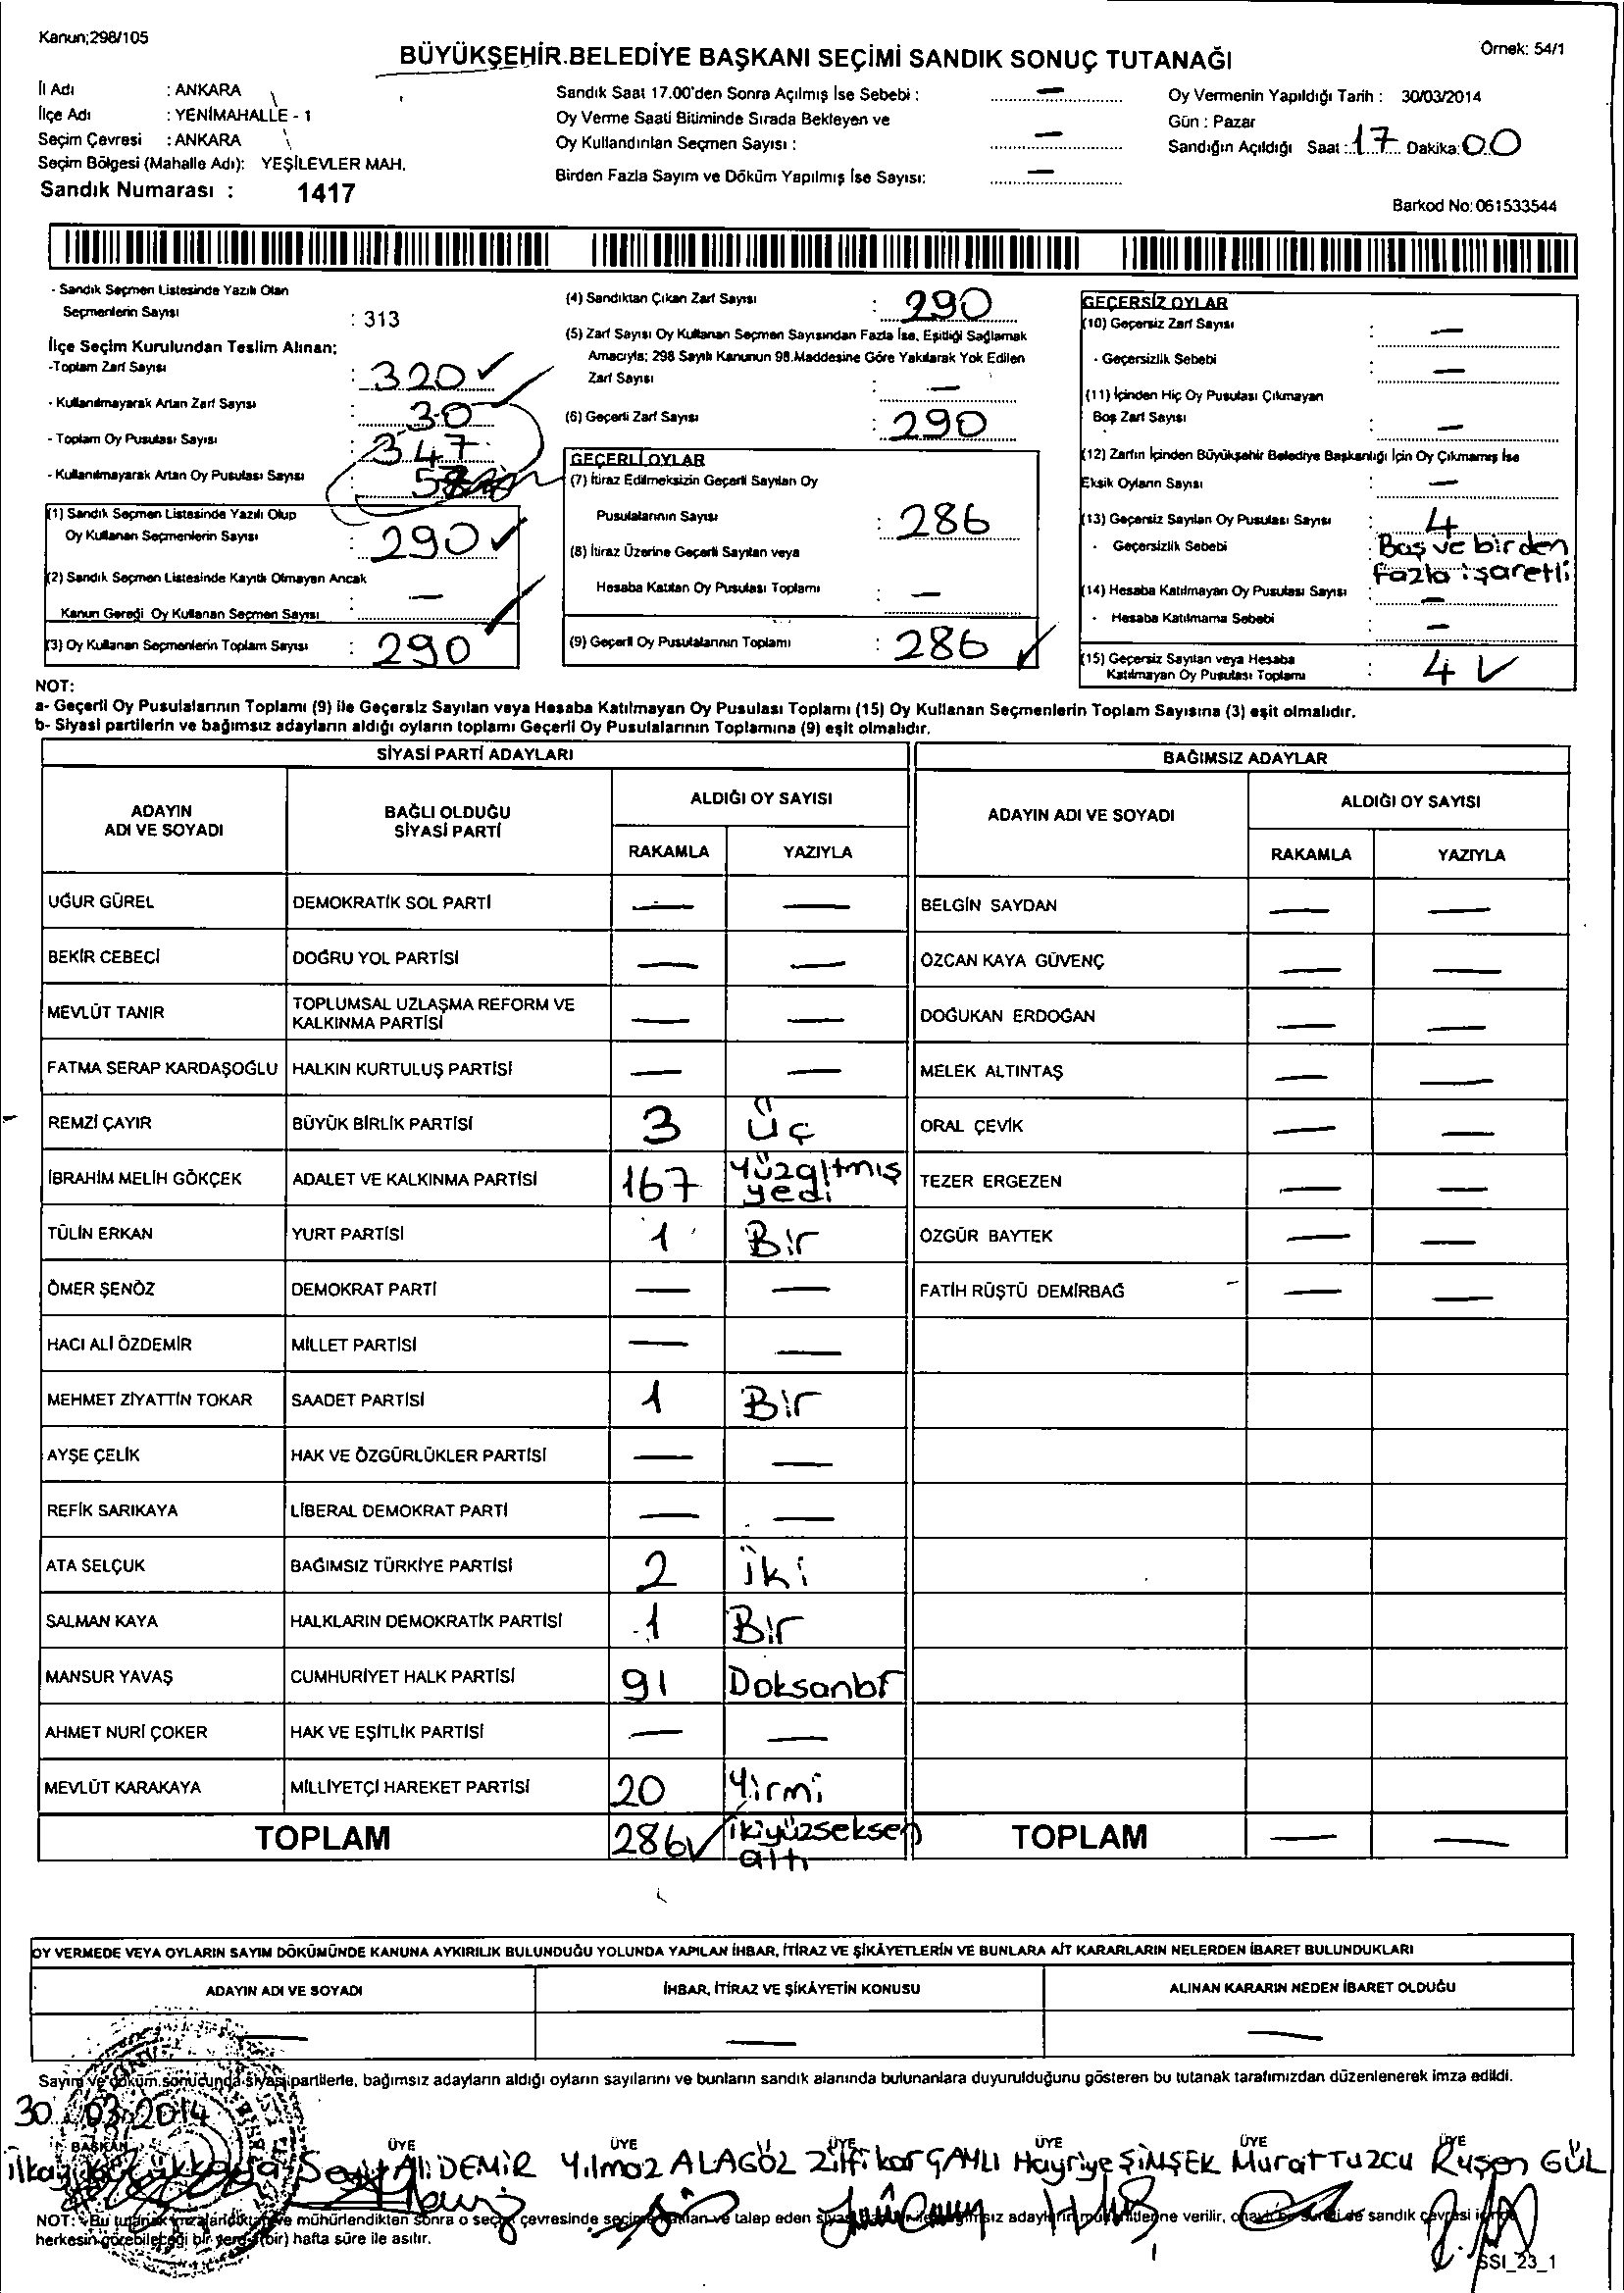 Kanun;298/105
Örnek: 54/1
BÜYÜKŞEHİR BELEDİYE BAŞKANI SEÇİMİ SANDIK SONUÇ TUTANAĞI
İl Adı : ANKARA
İlçe Adı : YENİMAHALLE - 1
Seçim Çevresi : ANKARA
Seçim Bölgesi (Mahalle Adı): YEŞİLEVLER MAH.
Sandık Numarası : 1417
Sandık Saat 17.00'den Sonra Açılmış İse Sebebi : —
Oy Verme Saati Bitiminde Sırada Bekleyen ve
Oy Kullandırılan Seçmen Sayısı : —
Birden Fazla Sayım ve Döküm Yapılmış İse Sayısı: —
Oy Vermenin Yapıldığı Tarih : 30/03/2014
Gün : Pazar
Sandığın Açıldığı Saat : 17 Dakika: 00
Barkod No: 061533544
- Sandık Seçmen Listesinde Yazılı Olan
Seçmenlerin Sayısı : 313
İlçe Seçim Kurulundan Teslim Alınan;
-Toplam Zarf Sayısı : 320
- Kullanılmayarak Artan Zarf Sayısı : 30
- Toplam Oy Pusulası Sayısı : 347
- Kullanılmayarak Artan Oy Pusulası Sayısı :
(1) Sandık Seçmen Listesinde Yazılı Olup
Oy Kullanan Seçmenlerin Sayısı : 290
(2) Sandık Seçmen Listesinde Kayıtlı Olmayan Ancak
Kanun Gereği Oy Kullanan Seçmen Sayısı : —
(3) Oy Kullanan Seçmenlerin Toplam Sayısı : 290
(4) Sandıktan Çıkan Zarf Sayısı : 290
(5) Zarf Sayısı Oy Kullanan Seçmen Sayısından Fazla İse, Eşitliği Sağlamak
Amacıyla; 298 Sayılı Kanunun 98.Maddesine Göre Yakılarak Yok Edilen
Zarf Sayısı : —
(6) Geçerli Zarf Sayısı : 290
GEÇERLİ OYLAR
(7) İtiraz Edilmeksizin Geçerli Sayılan Oy
Pusulalarının Sayısı : 286
(8) İtiraz Üzerine Geçerli Sayılan veya
Hesaba Katılan Oy Pusulası Toplamı : —
(9) Geçerli Oy Pusulalarının Toplamı : 286
GEÇERSİZ OYLAR
(10) Geçersiz Zarf Sayısı : —
- Geçersizlik Sebebi : —
(11) İçinden Hiç Oy Pusulası Çıkmayan
Boş Zarf Sayısı : —
(12) Zarfın İçinden Büyükşehir Belediye Başkanlığı İçin Oy Çıkmamış İse
Eksik Oyların Sayısı : —
(13) Geçersiz Sayılan Oy Pusulası Sayısı : 4
- Geçersizlik Sebebi : Boş ve birden
fazla işaretli
(14) Hesaba Katılmayan Oy Pusulası Sayısı : —
- Hesaba Katılmama Sebebi : —
(15) Geçersiz Sayılan veya Hesaba
Katılmayan Oy Pusulası Toplamı : 4
NOT:
a- Geçerli Oy Pusulalarının Toplamı (9) ile Geçersiz Sayılan veya Hesaba Katılmayan Oy Pusulası Toplamı (15) Oy Kullanan Seçmenlerin Toplam Sayısına (3) eşit olmalıdır.
b- Siyasi partilerin ve bağımsız adayların aldığı oyların toplamı Geçerli Oy Pusulalarının Toplamına (9) eşit olmalıdır.
SİYASİ PARTİ ADAYLARI BAĞIMSIZ ADAYLAR
ADAYIN ADI VE SOYADI BAĞLI OLDUĞU SİYASİ PARTİ ALDIĞI OY SAYISI ADAYIN ADI VE SOYADI ALDIĞI OY SAYISI
RAKAMLA YAZIYLA RAKAMLA YAZIYLA
UĞUR GÜREL DEMOKRATİK SOL PARTİ — — BELGİN SAYDAN — —
BEKİR CEBECİ DOĞRU YOL PARTİSİ — — ÖZCAN KAYA GÜVENÇ — —
MEVLÜT TANIR TOPLUMSAL UZLAŞMA REFORM VE KALKINMA PARTİSİ — — DOĞUKAN ERDOĞAN — —
FATMA SERAP KARDAŞOĞLU HALKIN KURTULUŞ PARTİSİ — — MELEK ALTINTAŞ — —
REMZİ ÇAYIR BÜYÜK BİRLİK PARTİSİ 3 Üç ORAL ÇEVİK — —
İBRAHİM MELİH GÖKÇEK ADALET VE KALKINMA PARTİSİ 167 Yüzaltmış yedi TEZER ERGEZEN — —
TÜLİN ERKAN YURT PARTİSİ 1 Bir ÖZGÜR BAYTEK — —
ÖMER ŞENÖZ DEMOKRAT PARTİ — — FATİH RÜŞTÜ DEMİRBAĞ — —
HACI ALİ ÖZDEMİR MİLLET PARTİSİ — —
MEHMET ZİYATTİN TOKAR SAADET PARTİSİ 1 Bir
AYŞE ÇELİK HAK VE ÖZGÜRLÜKLER PARTİSİ — —
REFİK SARIKAYA LİBERAL DEMOKRAT PARTİ — —
ATA SELÇUK BAĞIMSIZ TÜRKİYE PARTİSİ 2 iki
SALMAN KAYA HALKLARIN DEMOKRATİK PARTİSİ 1 Bir
MANSUR YAVAŞ CUMHURİYET HALK PARTİSİ 91 Doksanbr
AHMET NURİ ÇOKER HAK VE EŞİTLİK PARTİSİ — —
MEVLÜT KARAKAYA MİLLİYETÇİ HAREKET PARTİSİ 20 Yirmi
TOPLAM 286 ikiyüzseksen altı TOPLAM — —
OY VERMEDE VEYA OYLARIN SAYIM DÖKÜMÜNDE KANUNA AYKIRILIK BULUNDUĞU YOLUNDA YAPILAN İHBAR, İTİRAZ VE ŞİKÂYETLERİN VE BUNLARA AİT KARARLARIN NELERDEN İBARET BULUNDUKLARI
ADAYIN ADI VE SOYADI İHBAR, İTİRAZ VE ŞİKÂYETİN KONUSU ALINAN KARARIN NEDEN İBARET OLDUĞU
— — —
Sayım ve döküm sonucunda siyasi partilerle, bağımsız adayların aldığı oyların sayılarını ve bunların sandık alanında bulunanlara duyurulduğunu gösteren bu tutanak tarafımızdan düzenlenerek imza edildi.
30 03 2014
BAŞKAN ÜYE ÜYE ÜYE ÜYE ÜYE ÜYE
ilkay Ali DEMİR Yılmaz ALAGÖZ Zilfikar ÇAMLI Hayriye ŞİMŞEK Murat TUZCU Ruşen GÜL
NOT: Bu tutanak imzalandıktan ve mühürlendikten sonra o seçim çevresinde seçime katılan ve talep eden siyasi adayların müşahitlerine verilir, onaylı bir sureti de sandık çevresi içinde
herkesin görebileceği bir yerde (bir) hafta süre ile asılır.
SSI_23_1